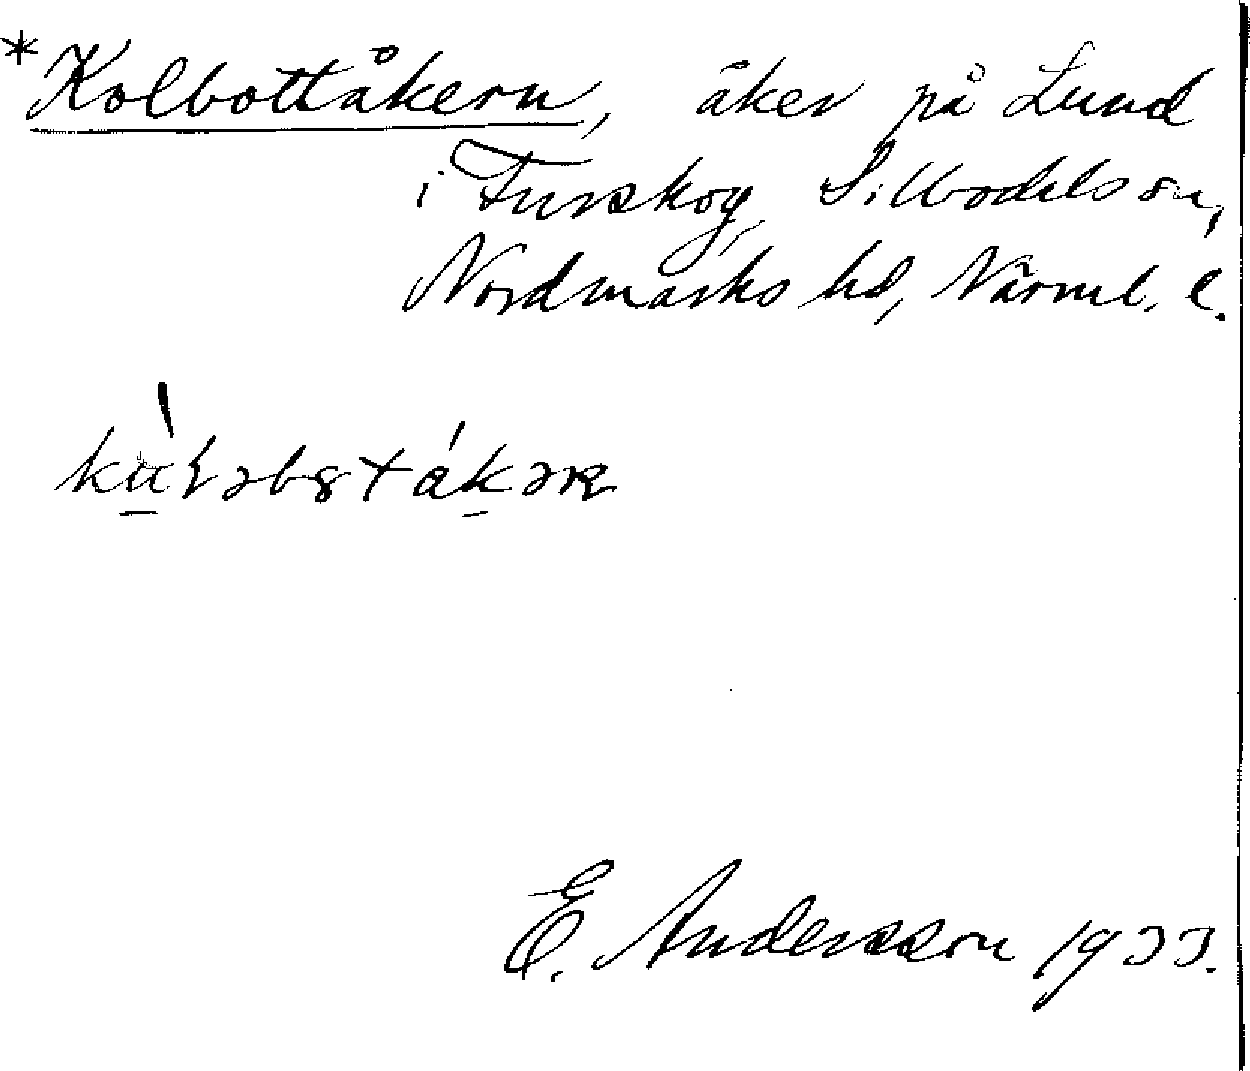 *Kolbottåkern, åker på Lund
i Furskog, Silbodals sn,
Nordmarks hd, Värml. l.
E. Andersson 1933.